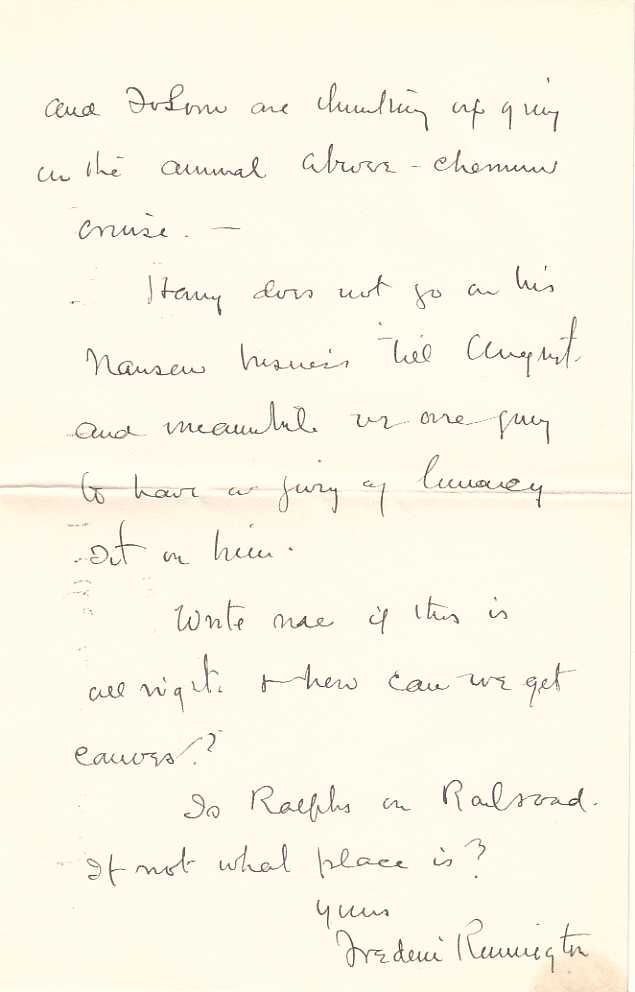 and Folsom are thinking of going
on the annual above-
cruise. —
Harry does not go on his
Nansen business till August.
and meanwhile we are going
to have a jury of lunacy
sit on him.
Write me if this is
all right. & how can we get
canoes.?
Is Ralphs on Railroad.
If not what place is?
yours
Frederic Remington